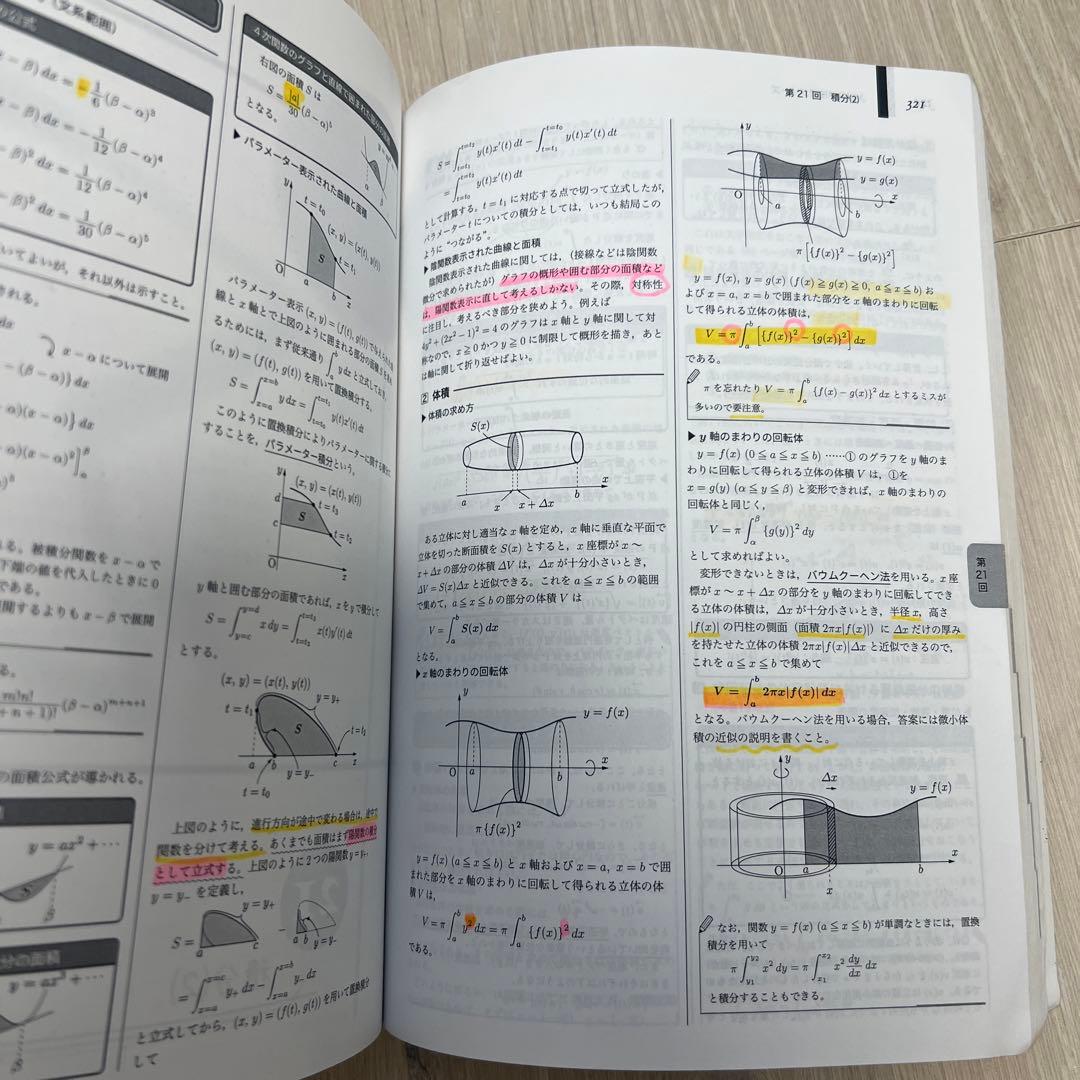 (文系範囲)
公式
− β) dx = −1/6 (β − α)³
− β) dx = −1/12 (β − α)⁴
− β)² dx = 1/12 (β − α)⁴
− β)² dx = 1/30 (β − α)⁵
いてよいが、それ以外は示すこと。
x − α について展開
− (β − α)} dx
被積分関数を x − α で
下端の値を代入したときに 0
である。
開するよりも x − β で展開
m!n!
(β − α)^{m+n+1}
の面積公式が導かれる。
y = ax² + …
S
分の面積
4次関数のグラフと直線で囲まれた部分の面積
右図の面積 S は
S = |a|/30 (β − α)⁵
となる。
▶パラメーター表示された曲線と面積
y
t = t₀
(x, y) = (x(t), y(t))
S
t = t₁
O
a
b
x
パラメーター表示 (x, y) = (f(t), g(t)) で
線と x 軸とで上図のように囲まれる部分の面積 S を
るためには、まず従来通り ∫_a^b y dx と立式しておき、
(x, y) = (f(t), g(t)) を用いて置換積分する。
S = ∫_{x=a}^{x=b} y dx = ∫_{t=t₀}^{t=t₁} y(t)x′(t) dt
このように置換積分によりパラメーターに関する積分に
することを、パラメーター積分という。
y
(x, y) = (x(t), y(t))
d
S
c
O
x
y 軸と囲む部分の面積であれば、x を y で積分して
S = ∫_{y=c}^{y=d} x dy = ∫ x(t)y′(t) dt
とする。
(x, y) = (x(t), y(t))
y = y₊
t = t₁
S
a
b
y = y₋
c
x
t = t₀
上図のように、進行方向が途中で変わる場合は、途中で
関数を分けて考える。あくまでも面積はまず陽関数の積分
として立式する。上図のように 2 つの陽関数 y = y₊,
y = y₋ を定義し、
S =
y = y₊
a
c
−
a b
y = y₋
= ∫_{x=a}^{x=c} y₊ dx − ∫_{x=a}^{x=b} y₋ dx
と立式してから、(x, y) = (f(t), g(t)) を用いて置換積分
して
第 21 回 積分(2)
321
S = ∫_{t=t₁}^{t=t₂} y(t)x′(t) dt − ∫_{t=t₁}^{t=t₀} y(t)x′(t) dt
= ∫_{t=t₀}^{t=t₂} y(t)x′(t) dt
として計算する。t = t₁ に対応する点で切って立式したが、
パラメーター t についての積分としては、いつも結局この
ように “つながる”。
▶陰関数表示された曲線と面積
陰関数表示された曲線に関しては、(接線などは陰関数
微分で求められたが) グラフの概形や囲む部分の面積など
は、陽関数表示に直して考えるしかない。その際、対称性
に注目し、考えるべき部分を狭めよう。例えば
4y² + (2x² − 1)² = 4 のグラフは x 軸と y 軸に関して対
称なので、x ≧ 0 かつ y ≧ 0 に制限して概形を描き、あと
は軸に関して折り返せばよい。
2 体積
▶体積の求め方
S(x)
a
x
x + Δx
b
x
ある立体に対し適当な x 軸を定め、x 軸に垂直な平面で
立体を切った断面積を S(x) とすると、x 座標が x ～
x + Δx の部分の体積 ΔV は、Δx が十分小さいとき、
ΔV = S(x)Δx と近似できる。これを a ≦ x ≦ b の範囲
で集めて、a ≦ x ≦ b の部分の体積 V は
V = ∫_a^b S(x) dx
となる。
▶x 軸のまわりの回転体
y
y = f(x)
O
a
b
x
π{f(x)}²
y = f(x) (a ≦ x ≦ b) と x 軸および x = a, x = b で囲
まれた部分を x 軸のまわりに回転して得られる立体の体
積 V は、
V = π∫_a^b y² dx = π∫_a^b {f(x)}² dx
である。
y
y = f(x)
y = g(x)
O
a
b
x
π[{f(x)}² − {g(x)}²]
y = f(x), y = g(x) (f(x) ≧ g(x) ≧ 0, a ≦ x ≦ b) お
よび x = a, x = b で囲まれた部分を x 軸のまわりに回転
して得られる立体の体積は、
V = π∫_a^b [{f(x)}² − {g(x)}²] dx
である。
π を忘れたり V = π∫_a^b {f(x) − g(x)}² dx とするミスが
多いので要注意。
▶y 軸のまわりの回転体
y = f(x) (0 ≦ a ≦ x ≦ b) ……① のグラフを y 軸のま
わりに回転して得られる立体の体積 V は、①を
x = g(y) (α ≦ y ≦ β) と変形できれば、x 軸のまわりの
回転体と同じく、
V = π∫_α^β {g(y)}² dy
として求めればよい。
変形できないときは、バウムクーヘン法を用いる。x 座
標が x ～ x + Δx の部分を y 軸のまわりに回転してでき
る立体の体積は、Δx が十分小さいとき、半径 x, 高さ
|f(x)| の円柱の側面 (面積 2πx|f(x)|) に Δx だけの厚み
を持たせた立体の体積 2πx|f(x)|Δx と近似できるので、
これを a ≦ x ≦ b で集めて
V = ∫_a^b 2πx|f(x)| dx
となる。バウムクーヘン法を用いる場合、答案には微小体
積の近似の説明を書くこと。
y
Δx
y = f(x)
O
a
x
b
x
なお、関数 y = f(x) (a ≦ x ≦ b) が単調なときには、置換
積分を用いて
π∫_{y₁}^{y₂} x² dy = π∫_{x₁}^{x₂} x² dy/dx dx
と積分することもできる。
第21回